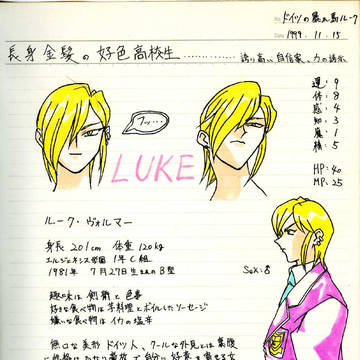 No. ドイツの暴れ馬ルーク
Date 1999. 11. 15
長身金髪の好色高校生…………誇り高い自信家、力の誇示
フッ…
LUKE
運:9
体:8
感:4
知:3
魔:1
精:5
HP:40
MP:25
ルーク・ヴォルマー
身長 201cm 体重 120kg
エルジェネシス学園 1年C組
1981年 7月27日生まれのB型
Sex:♂
趣味は剣術と色事
好きな食べ物は芋料理とボイルしたソーセージ
嫌いな食べ物はイカの塩辛
無口な美形ドイツ人。クールな外見とは裏腹